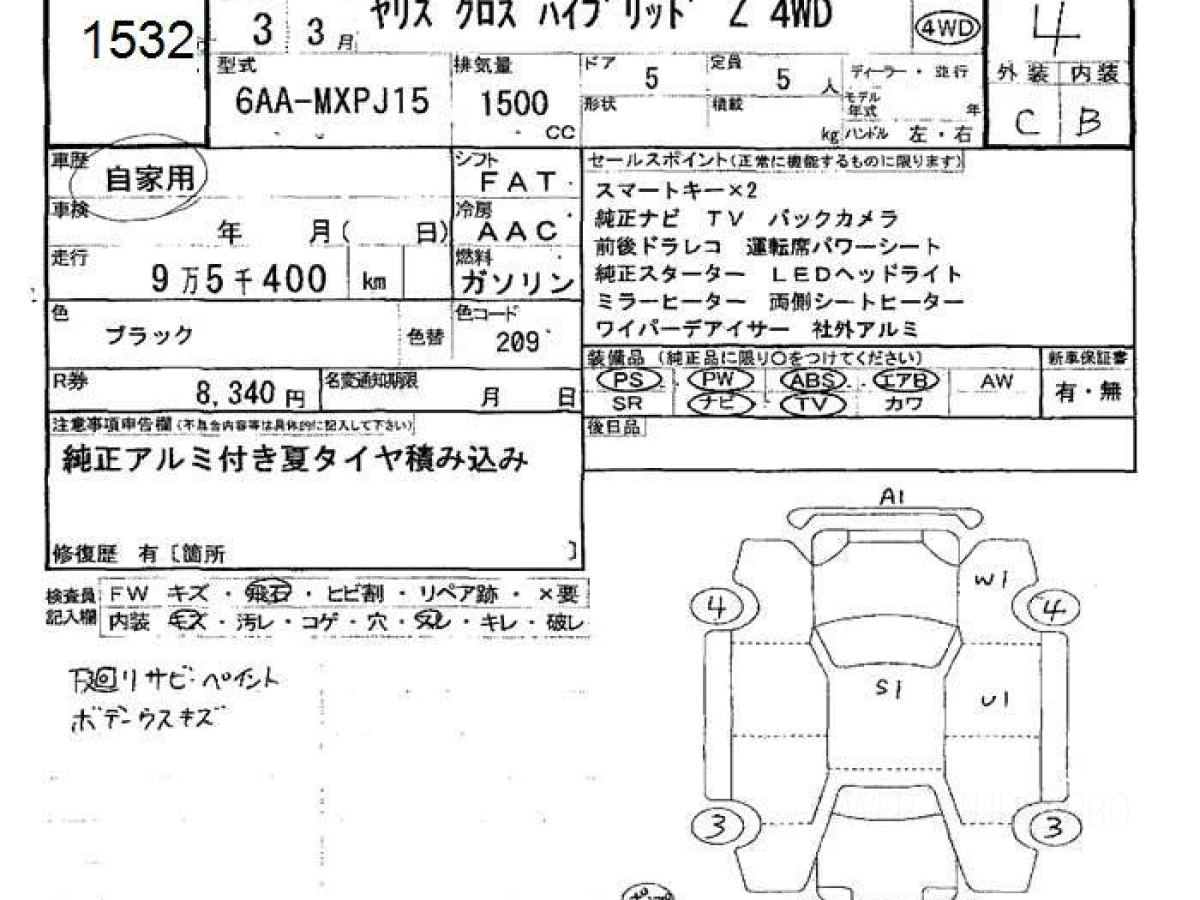 1532
3 3月
ヤリス クロス ハイブリッド Z 4WD
4WD
4
型式
6AA-MXPJ15
排気量
1500
CC
ドア 5
定員 5 人
形状
積載
kg
ディーラー・並行
モデル年式 年
ハンドル 左・右
外装 内装
C B
車歴
自家用
シフト
FAT
車検
年 月( 日)
冷房
AAC
走行
9万5千400 km
燃料
ガソリン
色
ブラック
色替
色コード
209
R券
8,340 円
名変通知期限
月 日
セールスポイント(正常に機能するものに限ります)
スマートキー×2
純正ナビ TV バックカメラ
前後ドラレコ 運転席パワーシート
純正スターター LEDヘッドライト
ミラーヒーター 両側シートヒーター
ワイパーデアイサー 社外アルミ
装備品 (純正品に限り〇をつけてください)
新車保証書
PS PW ABS エアB AW
有・無
SR ナビ TV カワ
後日品
注意事項申告欄(不具合内容等は具体的に記入して下さい)
純正アルミ付き夏タイヤ積み込み
修復歴 有〔箇所 〕
検査員記入欄
FW キズ・飛石・ヒビ割・リペア跡・×要
内装 キズ・汚レ・コゲ・穴・スレ・キレ・破レ
下廻りサビ・ペイント
ボデーウスキズ
A1
W1
4
4
S1
U1
3
3